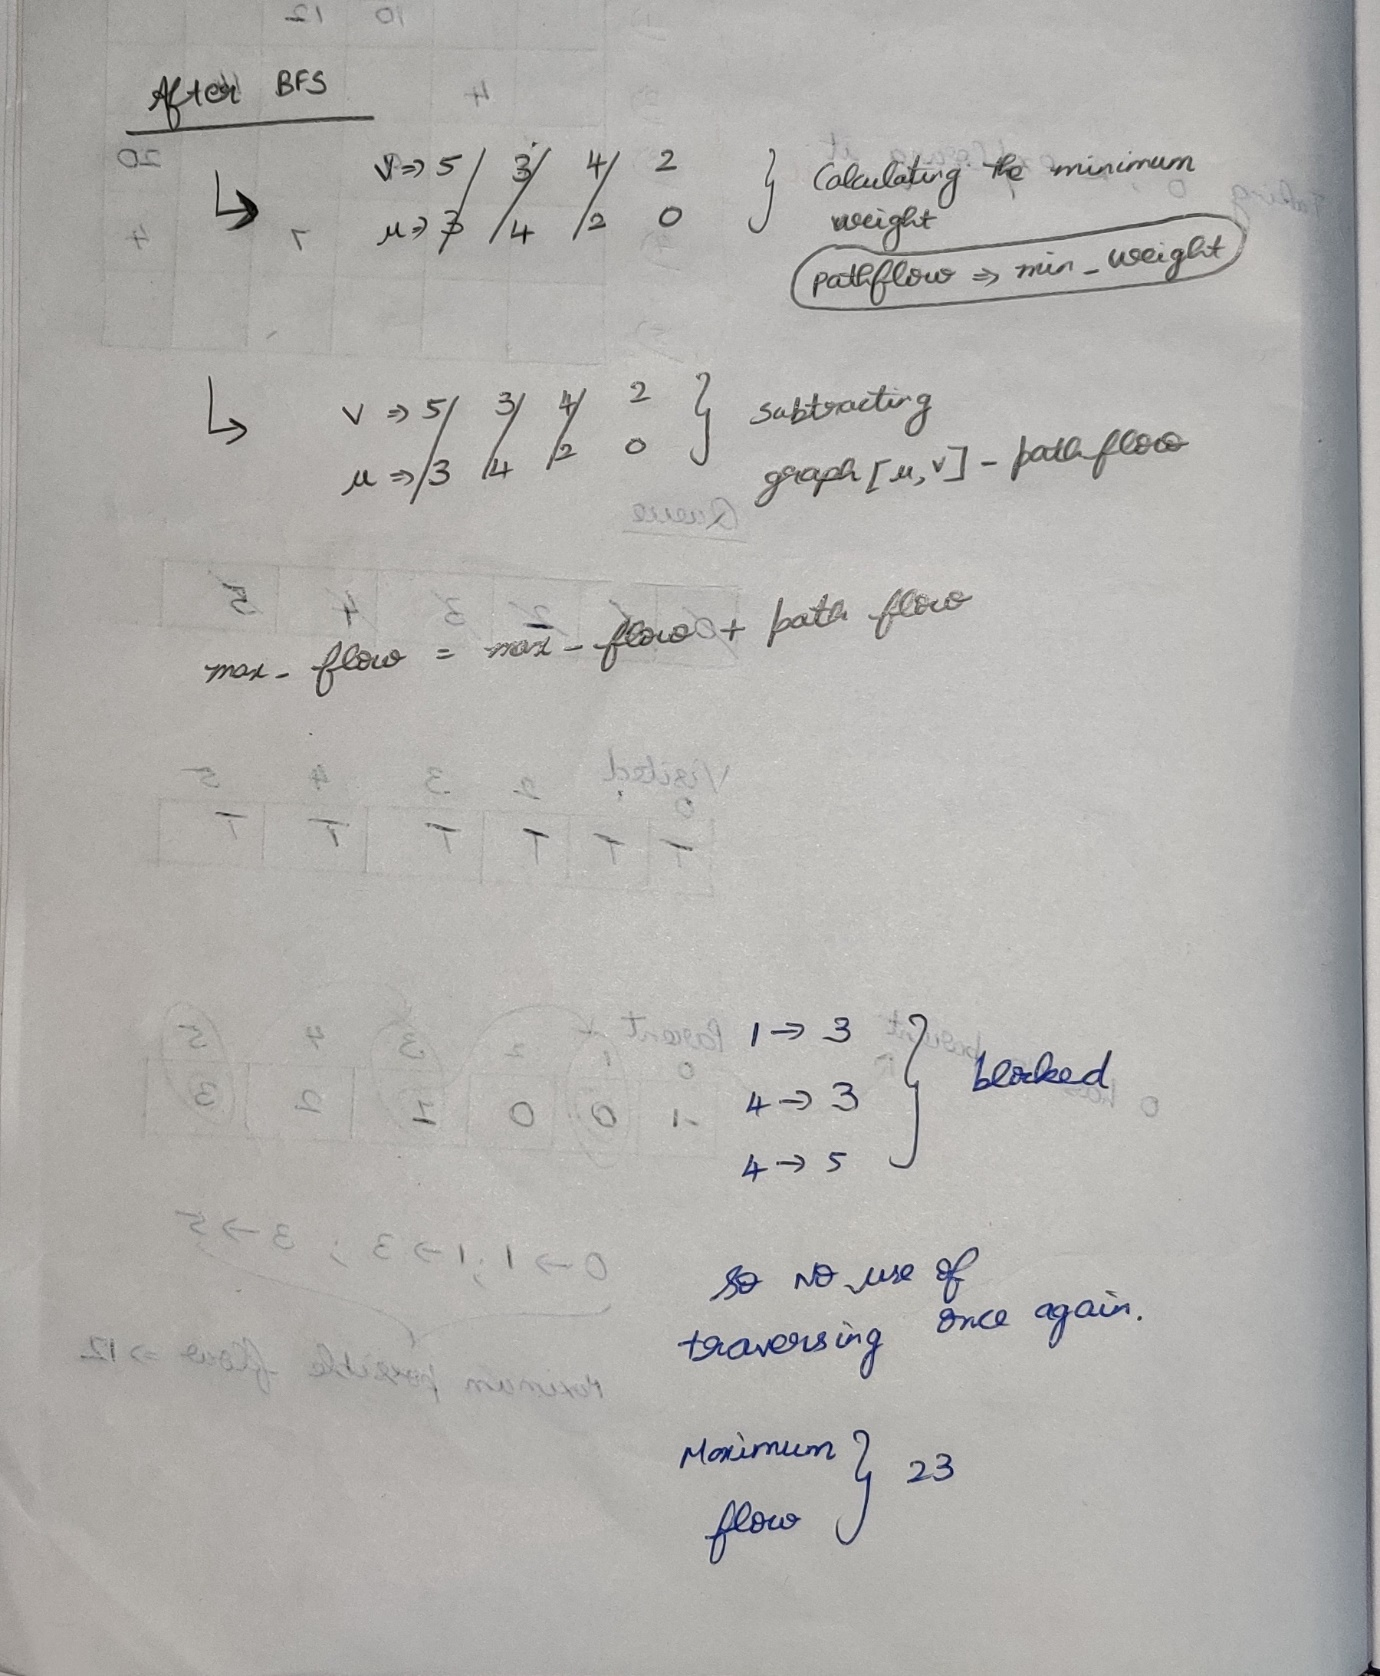 After BFS
v ⇒ 5 / 3 / 4 / 2 } Calculating the minimum
u ⇒ 3 / 4 / 2 0 weight
pathflow ⇒ min_weight
v ⇒ 5 / 3 / 4 / 2 } subtracting
u ⇒ 3 / 4 / 2 0 graph [u,v] - path flow
max_flow = max_flow + path flow
1 → 3
4 → 3 } blocked
4 → 5
so no use of
traversing once again.
Maximum } 23
flow